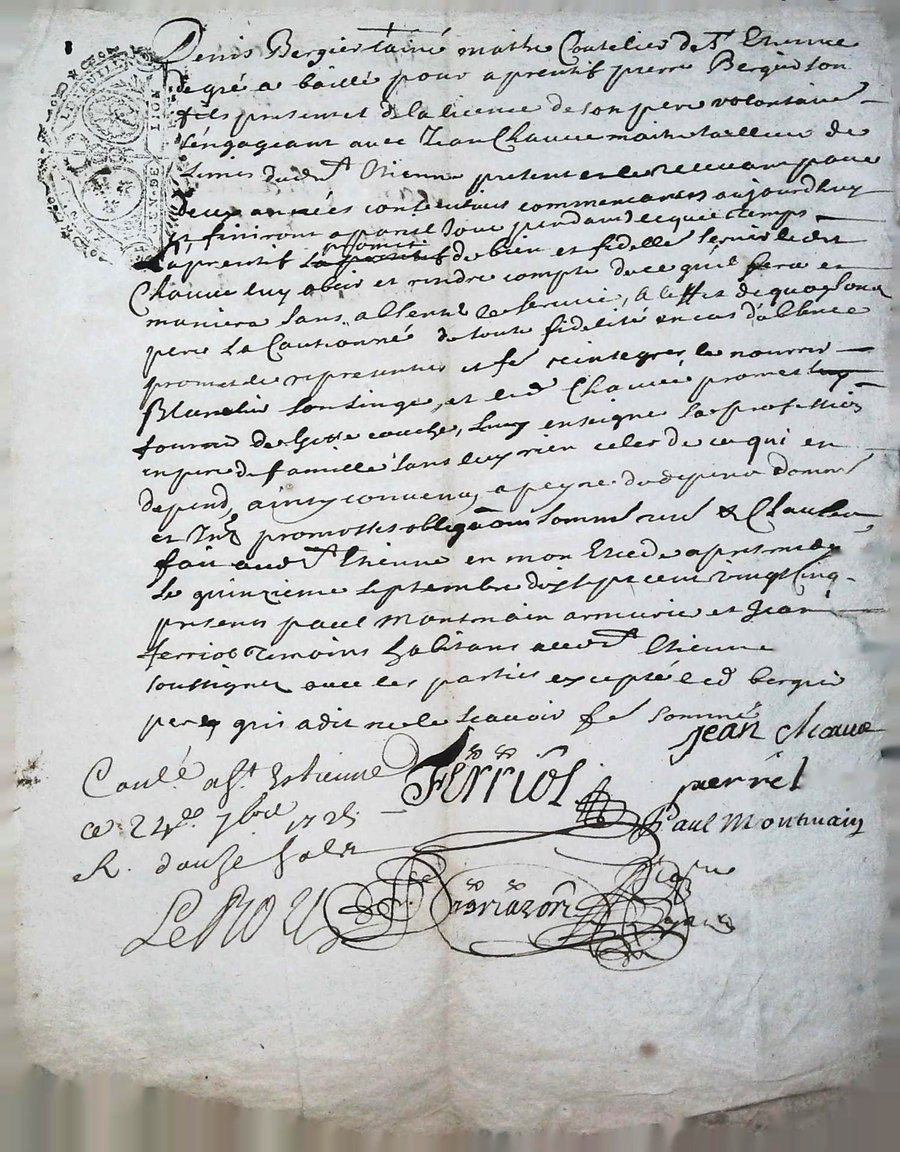 Denis Bergier L'ainé maitre Coutelier de St Etienne
de gré a baillé pour aprentif pierre Bergier son
fils present et de la licence de son pere volontaire
s'engageant avec Jean Chauve maitre tailleur de
Limes dud St Etienne present et le recevant pour
deux années continuives commencantes aujourdhuy
et finiront a pareil Jour pendant lequel temps
L'aprentif promet de bien et fidelle servir ledit
Chauve luy obeir et rendre compte de ce qu'il fera et
maniera sans absenter le service, A l'effet de quoy son
pere La Cautionné de toute fidelité en cas d'absence
promet de representer et fe reintegrer le nourrir
Blanchir son linge, et led Chauve promet
fournir de couche, Luy enseigne sa profession
en pere de famille sans luy rien celer de ce qui en
depend, ainsy convenu, a peyne de depens dom
et promettes obligeans Soumis
fait aud St Etienne en mon Etude apres midy
Le quinzieme septembre dix sept cent vingt cinq
presents paul Montmain armurier et Jean
ferriol temoins habitans aud St Etienne
soussignez avec les parties excepté led bergier
pere qui a dit ne le scavoir fe sommé
jean chauve
Ferriol
Paul Montmain
Conlé a St Estienne
ce 24e 7bre 1725
R. douse sols
LeROUX